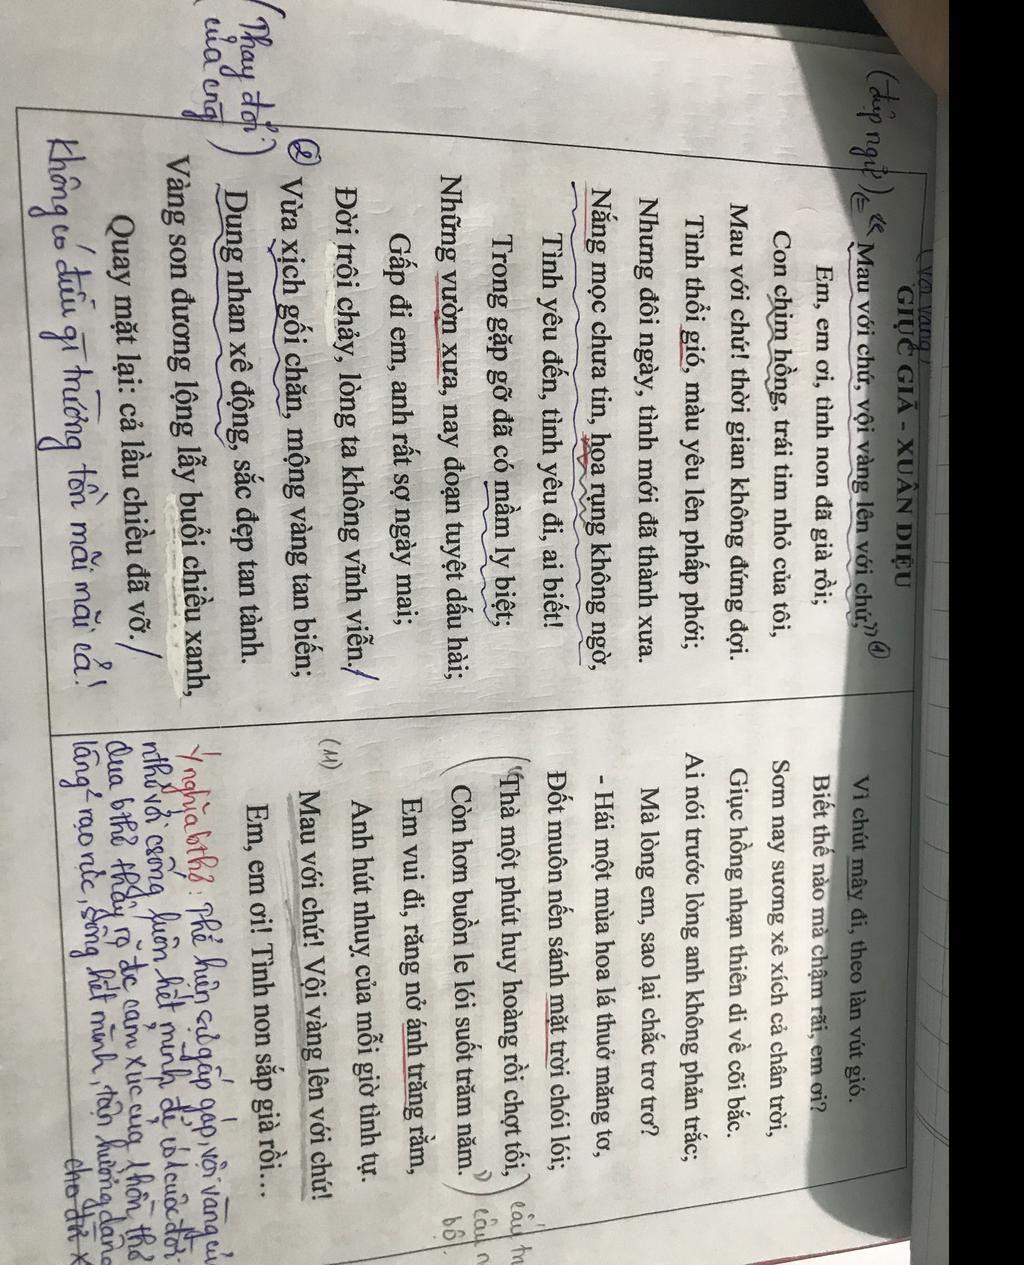 GIỤC GIÃ - XUÂN DIỆU
(vội vàng)
(điệp ngữ) = "Mau với chứ, vội vàng lên với chứ," (1)
Em, em ơi, tình non đã già rồi;
Con chim hồng, trái tim nhỏ của tôi,
Mau với chứ! thời gian không đứng đợi.
Tình thổi gió, màu yêu lên phấp phới;
Nhưng đôi ngày, tình mới đã thành xưa.
Nắng mọc chưa tin, hoa rụng không ngờ,
Tình yêu đến, tình yêu đi, ai biết!
Trong gặp gỡ đã có mầm ly biệt;
Những vườn xưa, nay đoạn tuyệt dấu hài;
Gấp đi em, anh rất sợ ngày mai;
Đời trôi chảy, lòng ta không vĩnh viễn./
(2) Vừa xịch gối chăn, mộng vàng tan biến;
(Thay đổi
của )
Dung nhan xê động, sắc đẹp tan tành.
Vàng son đương lộng lẫy buổi chiều xanh,
Quay mặt lại: cả lầu chiều đã vỡ./
không có điều gì trường tồn mãi mãi cả!
Vì chút mây đi, theo làn vút gió.
Biết thế nào mà chậm rãi, em ơi?
Sớm nay sương xê xích cả chân trời,
Giục hồng nhạn thiên di về cõi bắc.
Ai nói trước lòng anh không phản trắc;
Mà lòng em, sao lại chắc trơ trơ?
- Hái một mùa hoa lá thuở măng tơ,
Đốt muôn nến sánh mặt trời chói lói;
("Thà một phút huy hoàng rồi chợt tối,
Còn hơn buồn le lói suốt trăm năm.")
câu
câu
bộ.
Em vui đi, răng nở ánh trăng rằm,
Anh hút nhuỵ của mỗi giờ tình tự.
(11)
Mau với chứ! Vội vàng lên với chứ!
Em, em ơi! Tình non sắp già rồi…
Ý nghĩa bthơ: Thể hiện sự gấp gáp, vội vàng của
nthơ với csống, luôn hết mình để có 1 cuộc đời.
Qua bthơ thấy rõ đc cảm xúc của 1 hồn thơ
lãng² rạo rực, sống hết mình, tận hưởng dâng